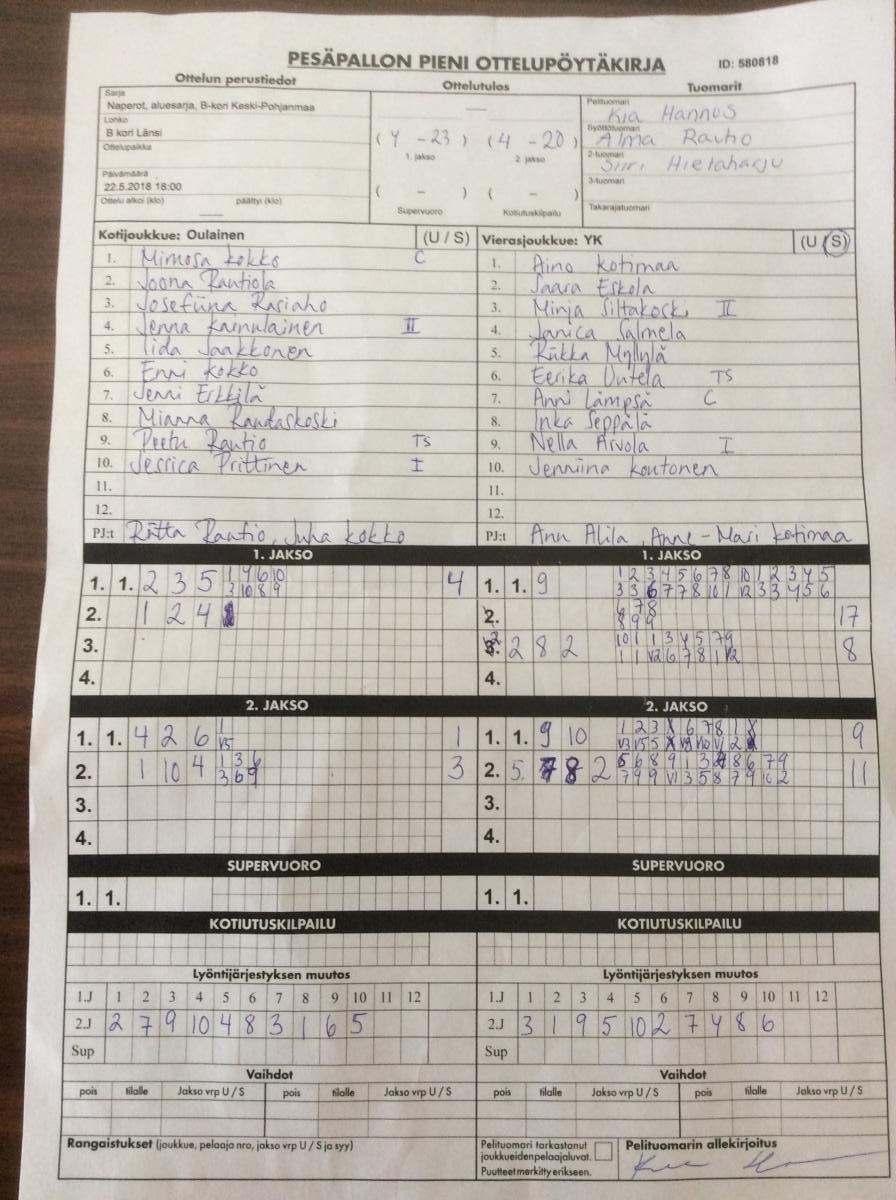 PESÄPALLON PIENI OTTELUPÖYTÄKIRJA ID: 580818
Ottelun perustiedot Ottelutulos Tuomarit
Sarja
Naperot, aluesarja, B-kori Keski-Pohjanmaa
Lohko
B kori Länsi
Ottelupaikka
Päivämäärä
22.5.2018 18:00
Ottelu alkoi (klo) päättyi (klo)
(4 - 23) (4 - 20)
1. jakso 2. jakso
( - ) ( - )
Supervuoro Kotiutuskilpailu
Pelituomari
Kia Hannus
Syöttötuomari
Alma Rautio
2-tuomari
Siiri Hietaharju
3-tuomari
Takarajatuomari
Kotijoukkue: Oulainen (U / S)
1. Mimosa Kokko C
2. Joona Rautiola
3. Josefiina Rasiaho
4. Jenna Kainulainen II
5. Iida Jaakkonen
6. Enni Kokko
7. Jenni Erkkilä
8. Mianna Randaskoski
9. Peetu Rautio TS
10. Jessica Prittinen I
11.
12.
PJ:t Riitta Rautio, Juha Kokko
Vierasjoukkue: YK (U / S)
1. Aino Kotimaa
2. Saara Eskola
3. Minja Siltakoski II
4. Janica Salmela
5. Riikka Myllylä
6. Eerika Uutela TS
7. Anni Lämpsä C
8. Inka Seppälä
9. Nella Arvola I
10. Jenniina Koutonen
11.
12.
PJ:t Ann Alila, Anne-Mari Kotimaa
1. JAKSO
1. 1. 2 3 5 1 4 6 10 4
3 10 8 9
2. 1 2 4
3.
4.
1. JAKSO
1. 1. 9 1 2 3 4 5 6 7 8 10 1 2 3 4 5
3 3 6 7 7 8 10 1 12 3 3 4 5 6
2. 6 7 8 17
8 9 9
3. 2 8 2 10 1 1 3 4 5 7 9 8
1 1 V2 6 7 8 1 V2
4.
2. JAKSO
1. 1. 4 2 6 1 1
V5
2. 1 10 4 1 3 6 3
3 6 9
3.
4.
2. JAKSO
1. 1. 9 10 9
2. 5. 8 2 11
3.
4.
SUPERVUORO SUPERVUORO
1. 1. 1. 1.
KOTIUTUSKILPAILU KOTIUTUSKILPAILU
Lyöntijärjestyksen muutos
1.J 1 2 3 4 5 6 7 8 9 10 11 12
2.J 2 7 9 10 4 8 3 1 6 5
Sup
Lyöntijärjestyksen muutos
1.J 1 2 3 4 5 6 7 8 9 10 11 12
2.J 3 1 9 5 10 2 7 4 8 6
Sup
Vaihdot Vaihdot
pois tilalle Jakso vrp U / S pois tilalle Jakso vrp U / S
pois tilalle Jakso vrp U / S pois tilalle Jakso vrp U / S
Rangaistukset (joukkue, pelaaja nro, jakso vrp U / S ja syy)
Pelituomari tarkastanut
joukkueidenpelaajaluvat.
Puutteet merkitty erikseen.
Pelituomarin allekirjoitus